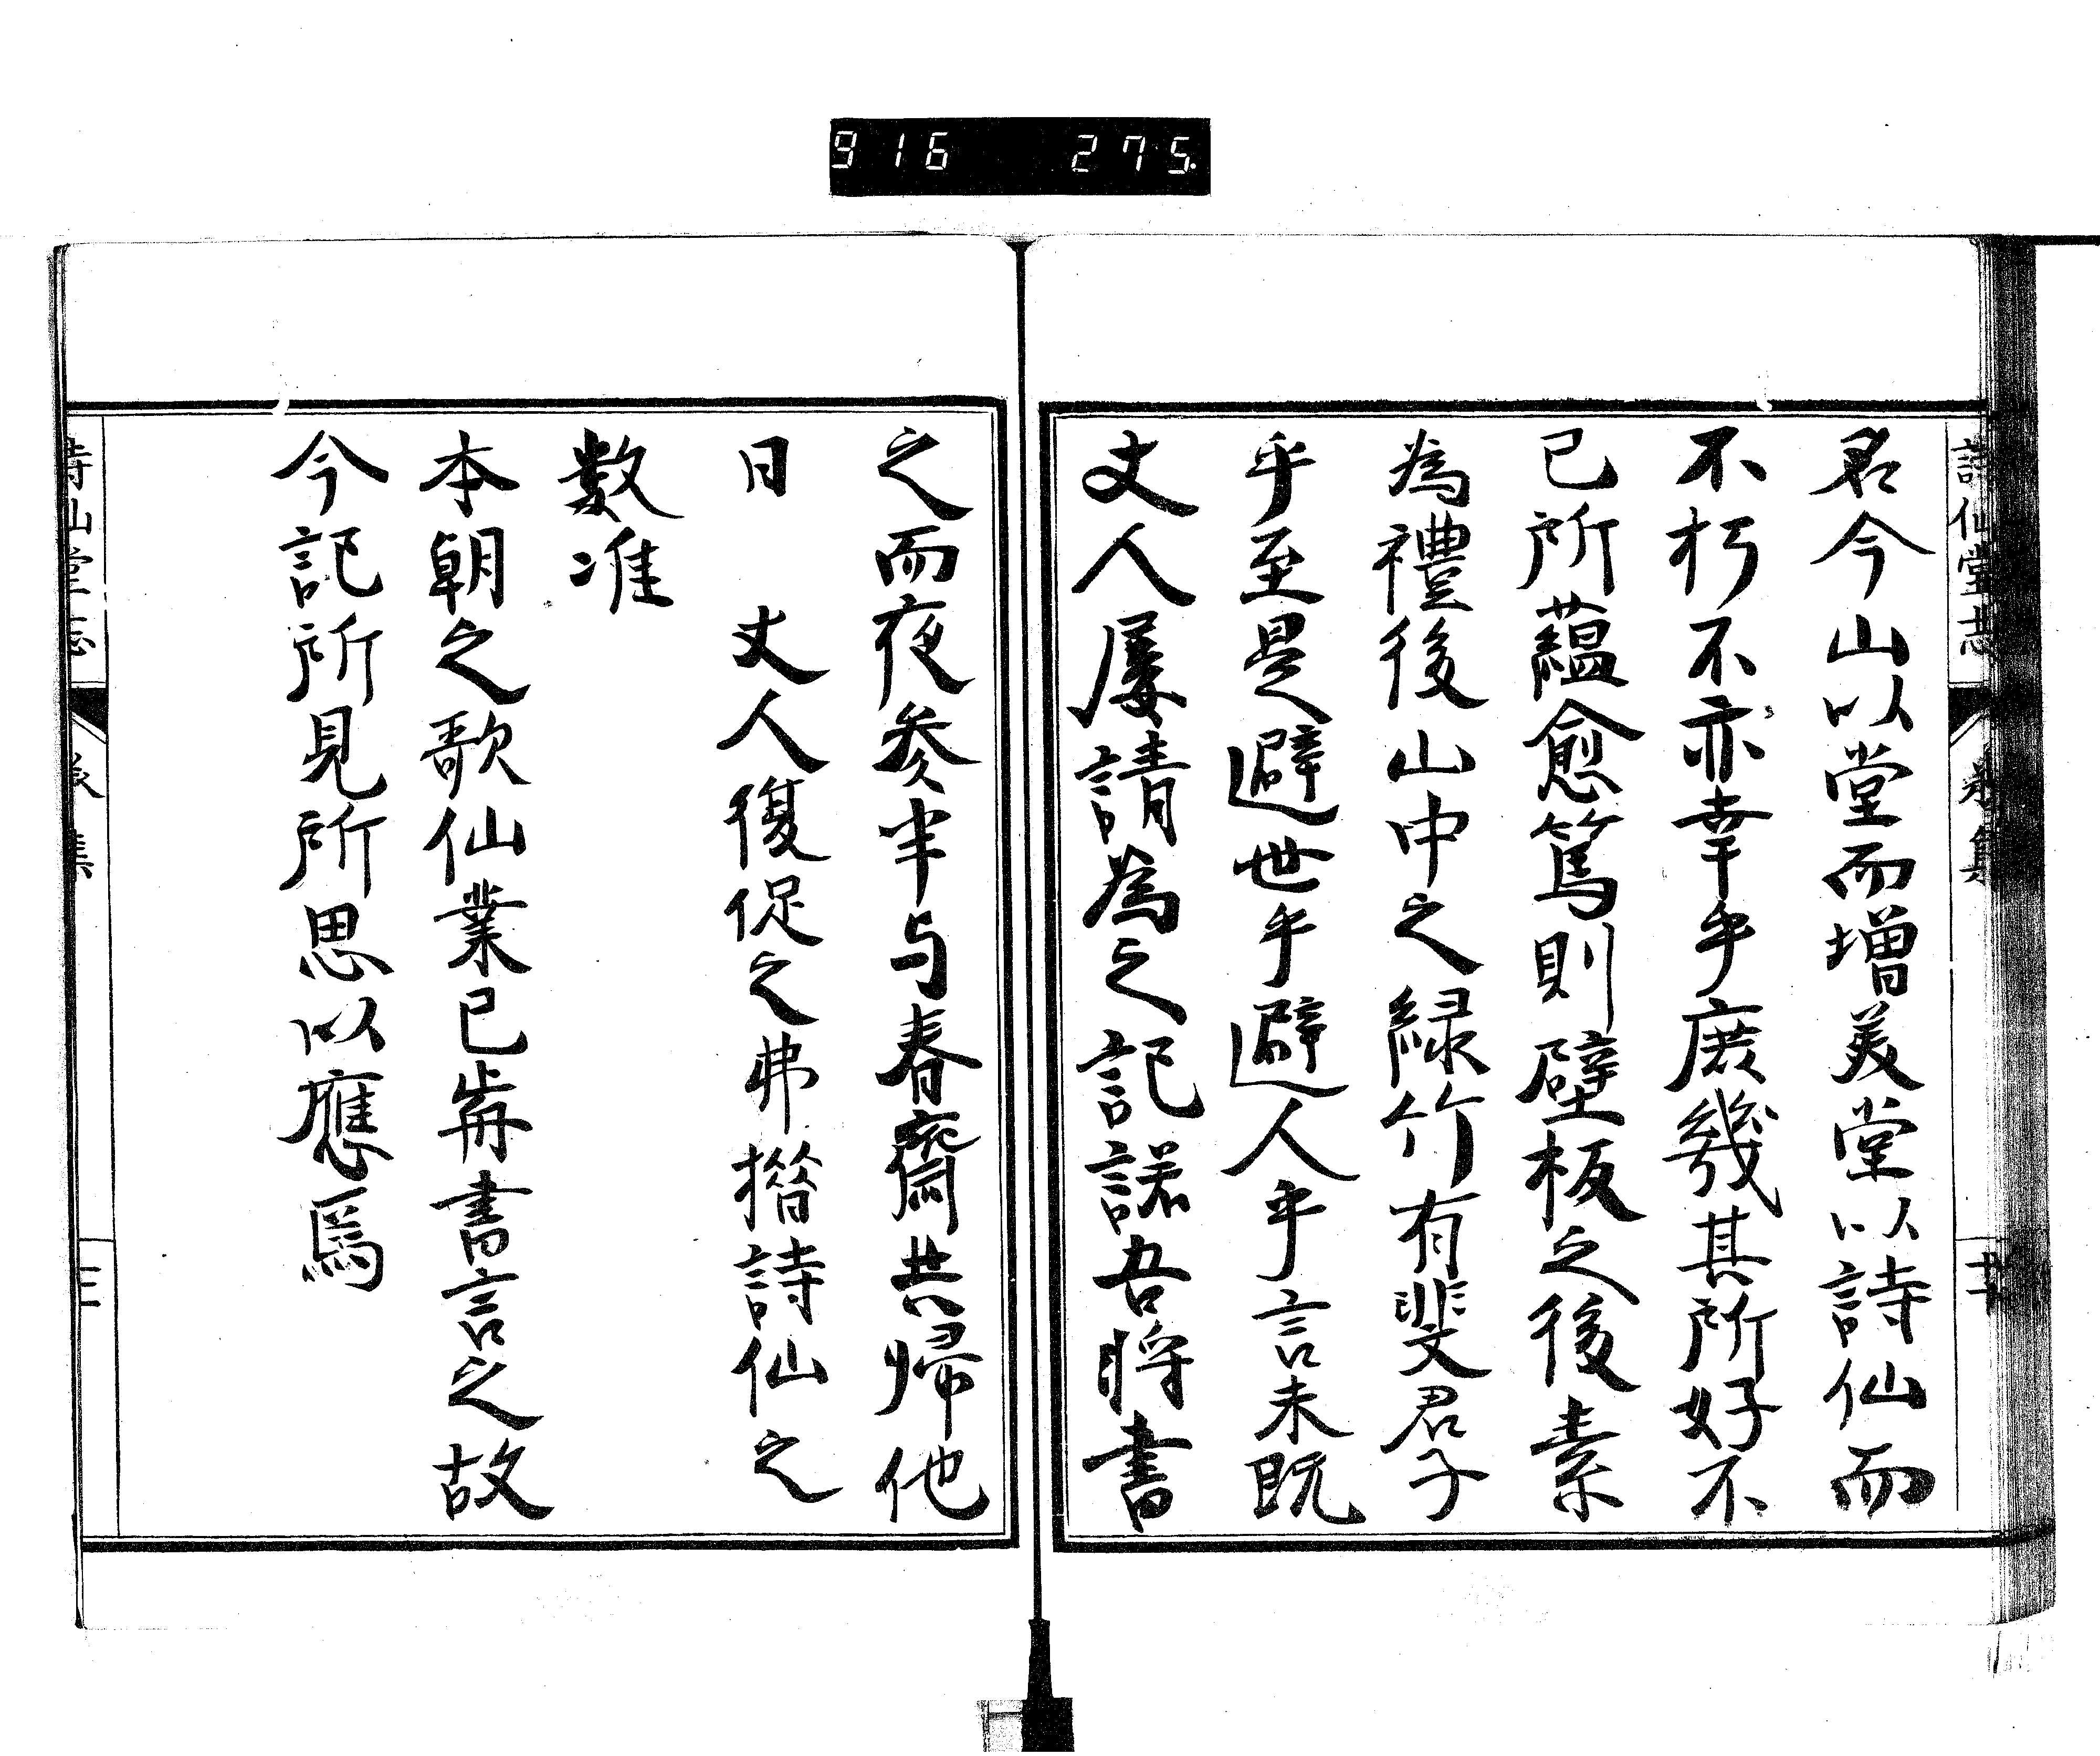 916 275.
詩仙堂志
名今山以堂而增美堂以詩仙而
不朽不亦幸乎庻幾其所好不
已所蘊愈篤則壁板之後素
為禮後山中之緑竹有斐君子
乎至是避世乎避人乎言未既
丈人屢請為之記諾吾將書
之而夜參半与春齋共帰他
日 丈人復促之弗揩詩仙之
数准
本朝之歌仙業已耑書言之故
今記所見所思以應焉